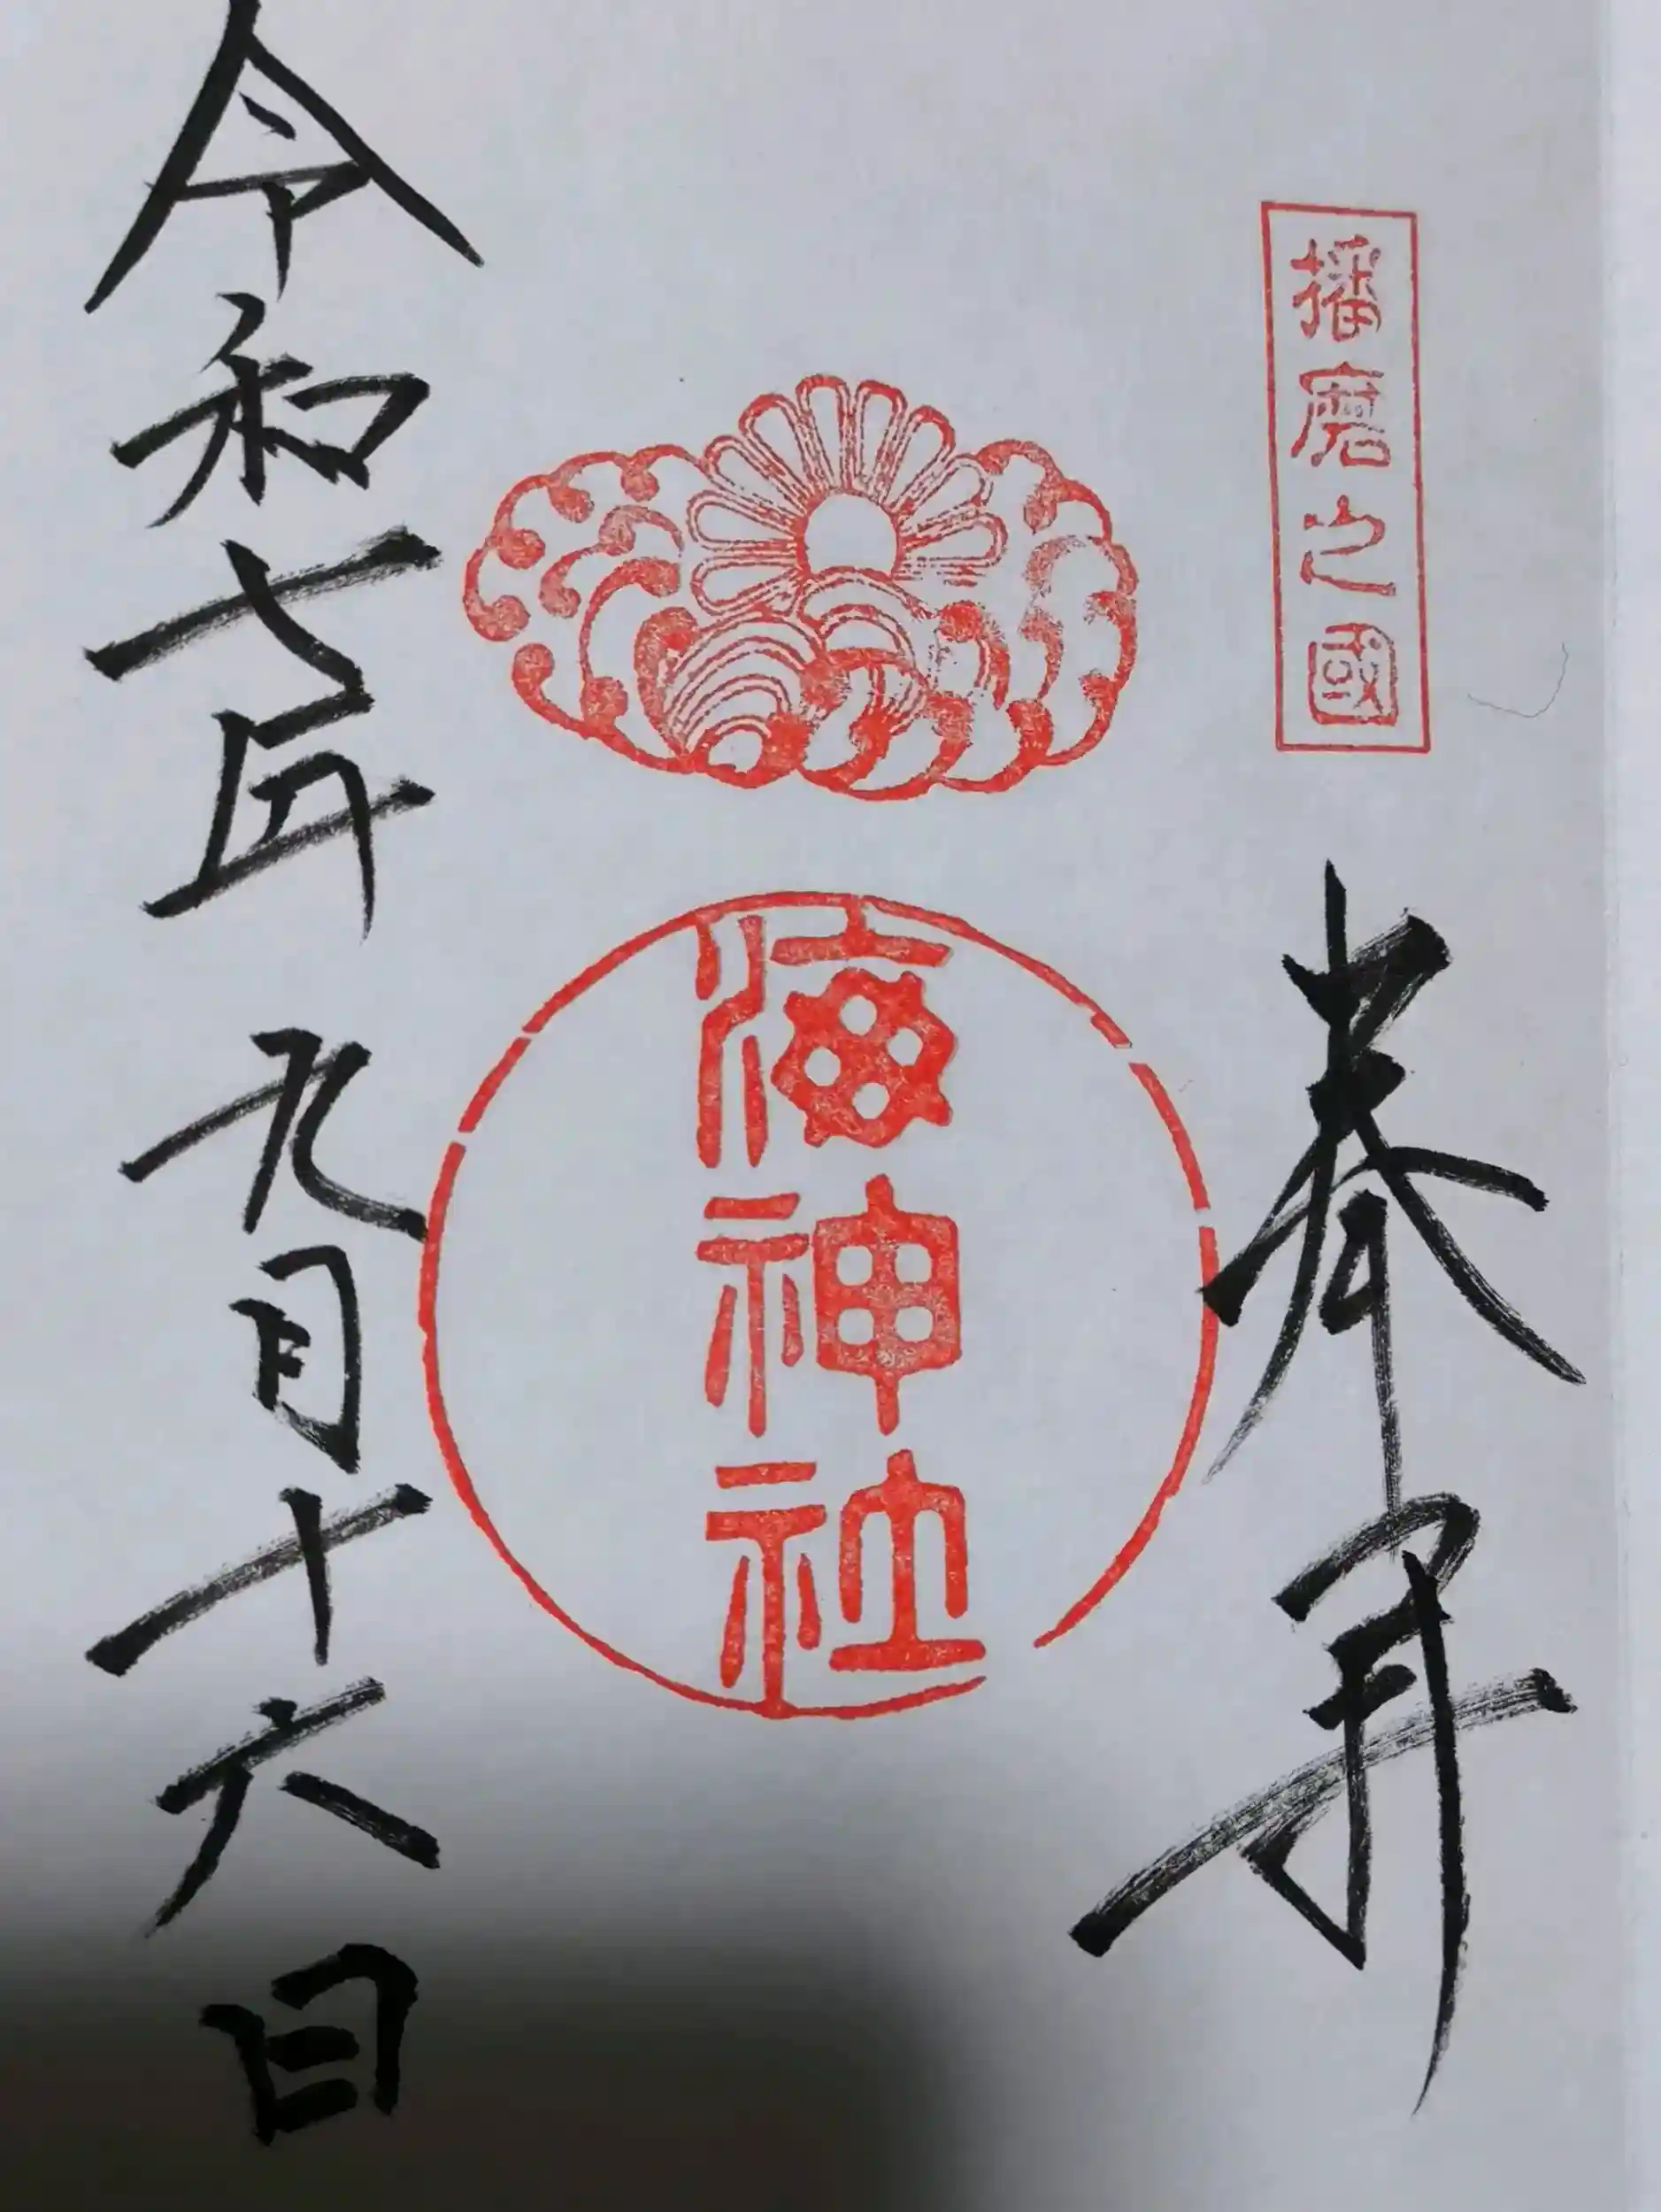 播磨之國
奉拜
海神社
令和七年九月十六日